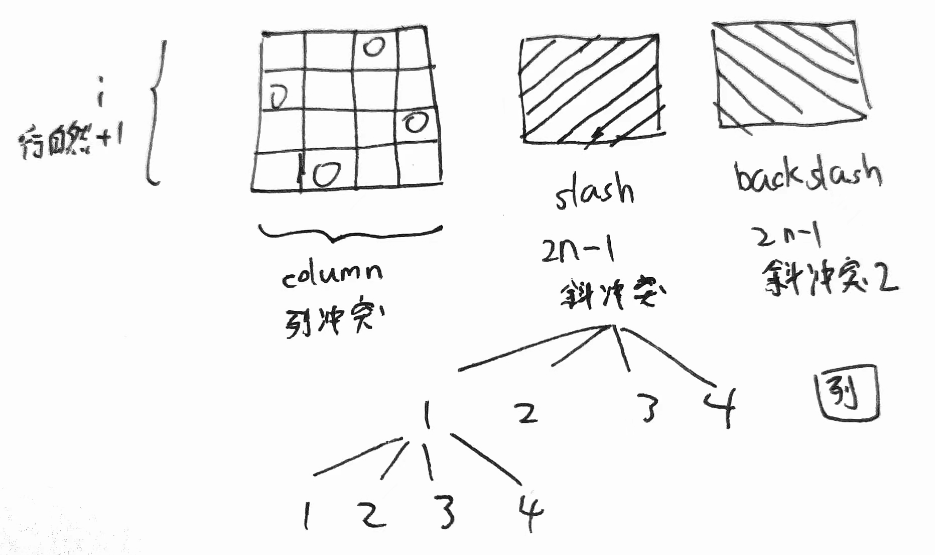 i
行自然+1
O
O
O
O
column
列冲突
slash
2n-1
斜冲突
backslash
2n-1
斜冲突2
1 2 3 4
列
1 2 3 4